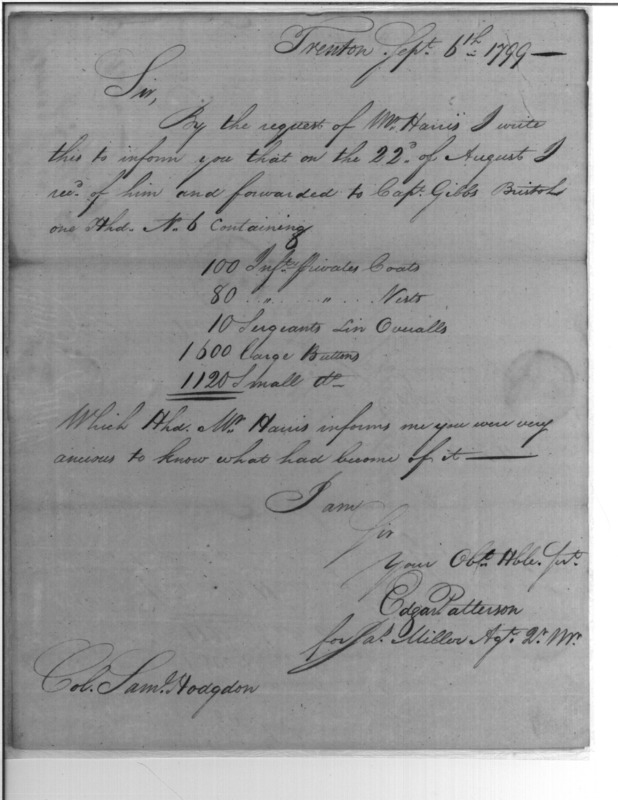 Trenton Sept. 6th 1799 —
Sir,
By the request of Mr. Harris I write
this to inform you that on the 22d. of August I
recd. of him and forwarded to Capt. Gibbs Bristol
one Hhd. N. 6 Containing
100 Infy. Privates Coats
80 " " Vests
10 Sergeants Lin Overalls
1600 Large Buttons
1120 Small do
Which Hhd. Mr. Harris informs me you were very
anxious to know what had become of it —
I am
Sir
Your Obt. Hble. Svt.
Edgar Patterson
for Jas. Miller Agt. Qr. Mr.
Col. Saml. Hodgdon